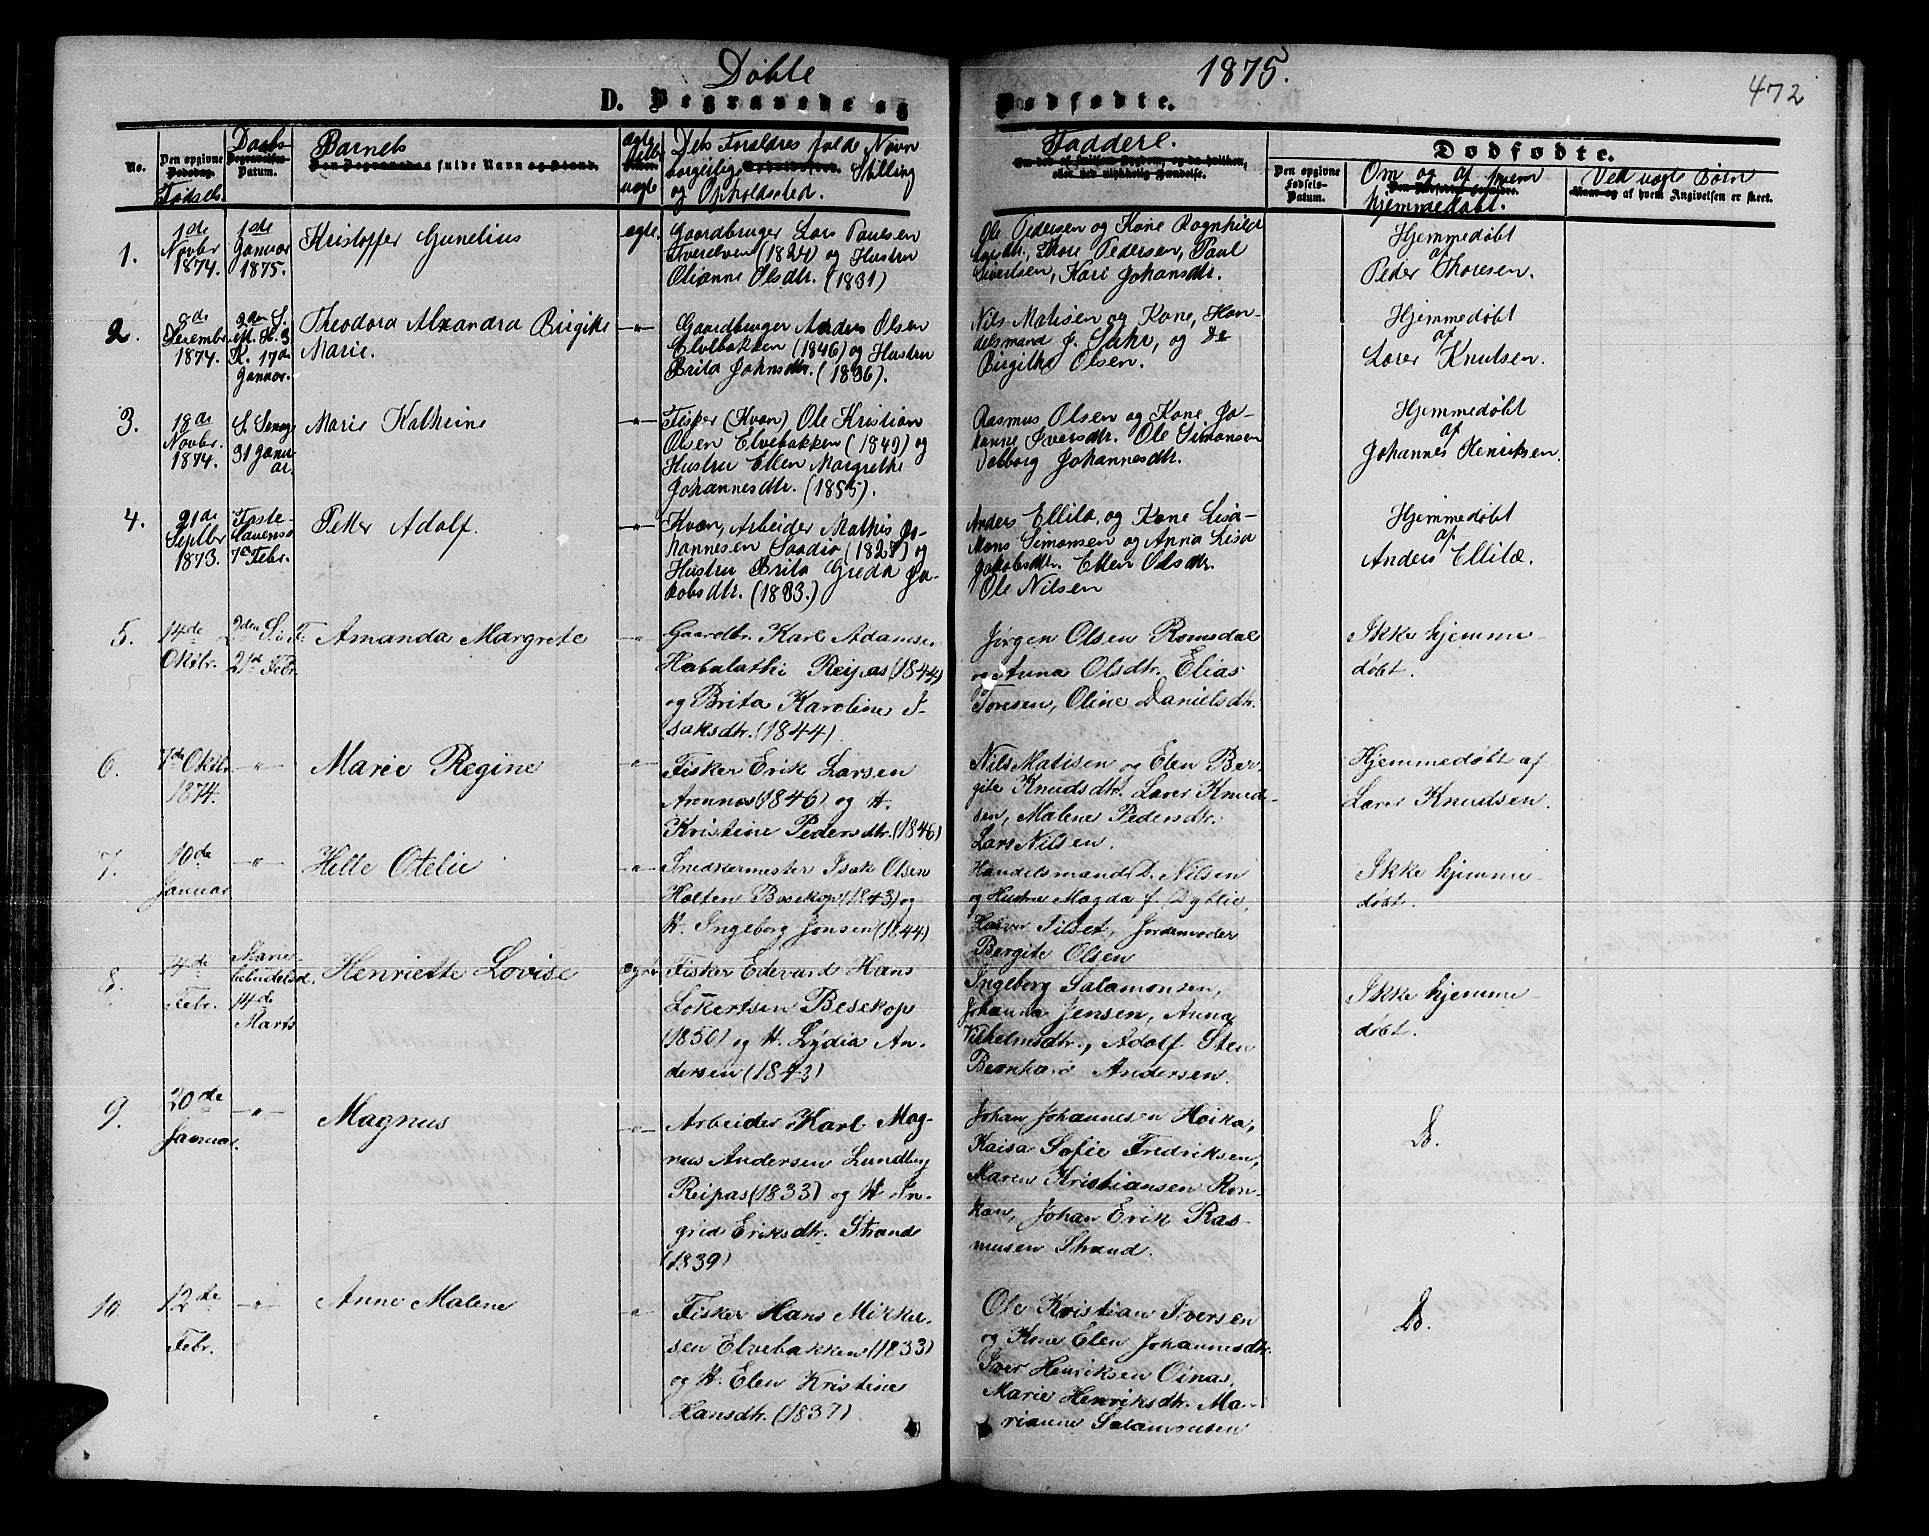 Døbte
1875.
472
D. Begravede og
Dødfødte.
No.
Den opgivne
Dødsdag.
Fødsels
Daabs
Begravelses-
Datum.
Barnets
Den Begravedes fulde Navn og Stand.
ægte
eller
uægte
Dets Forældres fulde Navn
borgerlige Stilling
og Opholdssted.
Faddere.
Om død af hvilken Sygdom, og da hvilken,
eller ved ulykkelig Hændelse.
Dødfødte.
Den opgivne
Fødsels-
Datum.
Om og af hvem
hjemmedøbt.
Ved uægte Børn
Naar og af hvem Angivelsen er skeet.
1.
1de
Novbr
1874.
1de
Januar
1875.
Kristoffer Gunelius
ægte
Gaardbruger Lars Paulsen
Tverelven (1824) og Hustru
Olianne Olsdtr. (1831)
Ole Pedersen og Kone Ragnhild
Larsdtr., Thore Pedersen, Paul
Sivertsen, Kari Johansdtr.
Hjemmedøbt
af
Peder Thoresen.
2.
Desembr
1874.
2den S.
eft. H. 3
K. 17de
Januar.
Theodora Alxandra Birgitte
Marie.
-"-
Gaardbruger Anders Olsen
Elvebakken (1846) og Hustru
Brita Johnsdtr. (1836).
Nils Matisen og Kone, Han-
delsmand J. Suhr, og
Birgitte Olsen.
Hjemmedøbt
af
Lærer Knutsen.
3.
18de
Novbr.
1874.
31 Janu
ar.
Marie Kathrine
-"-
Fisker (Kvæn) Ole Kristian
Olsen Elvebakken (1849) og
Hustru Ellen Margrethe
Johannesdtr. (1855).
Rasmus Olsen og Kone Jo-
hanne Iversdtr. Ole Simonsen
Valborg Johannesdtr.
Hjemmedøbt
af
Johannes Henriksen.
4.
21de
Septbr
1873.
Faste-
lavenss.
7de Febr.
Petter Adolf.
-"-
Kvæn, Arbeider Mathis Jo-
hannesen Saadio (1827) og
Hustru Brita Greda Ja-
kobsdtr. (1833.)
Anders Ellilæ, og Kone Lisa
Mons Simonsen og Anna Lisa
Jakobsdtr. Ellen Olsdtr.
Ole Nilsen
Hjemmedøbt
af
Anders Ellilæ.
5.
14de
Oktbr.
2den S. i F.
21de Febr.
Amanda Margrete
"
Gaardbr. Karl Adamsen
Habalathi Reipas (1844)
og Brita Karoline I-
saksdtr. (1844)
Jørgen Olsen Romsdal
og Anna Olsdtr. Elias
Toresen, Oline Danielsdtr.
Ikke hjemme-
døbt.
6.
7de Oktbr
1874.
-"-
Marie Regine
-"-
Fisker Erik Larsen
Aronnæs (1846) og H.
Kristine Pedersdtr. (1846)
Nils Matisen og Elen Ber-
gite Knudsdtr. Lærer Knud-
sen, Malene Pedersdtr.
Lars Nilsen.
Hjemmedøbt af
Lærer Knudsen.
7.
10de
Januar
-"-
Helle Otelie
-"-
Snedkermester Isak Olsen
Holten Bosekop (1843) og
H. Ingeborg Jonsen (1844)
Handelsmand D. Nilsen
og Hustru Magda f. Dyblie,
Halvor Tilset, Jordemoder
Bergite Olsen
Ikke hjemme-
døbt.
8.
4de
Febr.
Marie
bebudelsesd.
14de
Marts
Henriette Lovise
ægte
Fisker Edevard Hans
Lokertsen Besekop
(1850) og H. Lydia An-
dersen (1843)
Ingeborg Salamonsen,
Johanna Jensen, Anna
Vilhelmsdtr., Adolf Sten
Bernhard Andersen.
Ikke hjemme-
døbt.
9.
20de
Januar.
-"-
Magnus
-"-
Arbeider Karl Mag-
nus Andersen Lundberg
Reipas (1833) og H. In-
grid Eriksdtr. Strand
(1839)
Johan Johannesen Hoika,
Kaisa Sofie Fredriksen,
Maren Kristiansen Ron-
kan, Johan Erik Ras-
musen Strand.
Do.
10
12te
Febr.
-"-
Anne Malene
"
Fisker Hans Mikkel-
sen Elvebakken (1833)
og H. Elen Kristine
Hansdtr. (1837)
Ole Kristian Iversen
og Kone Elen Johannesdtr.
Iver Henriksen Oinas,
Marie Henriksdtr. Ma-
rianne Salamonsen
Do.